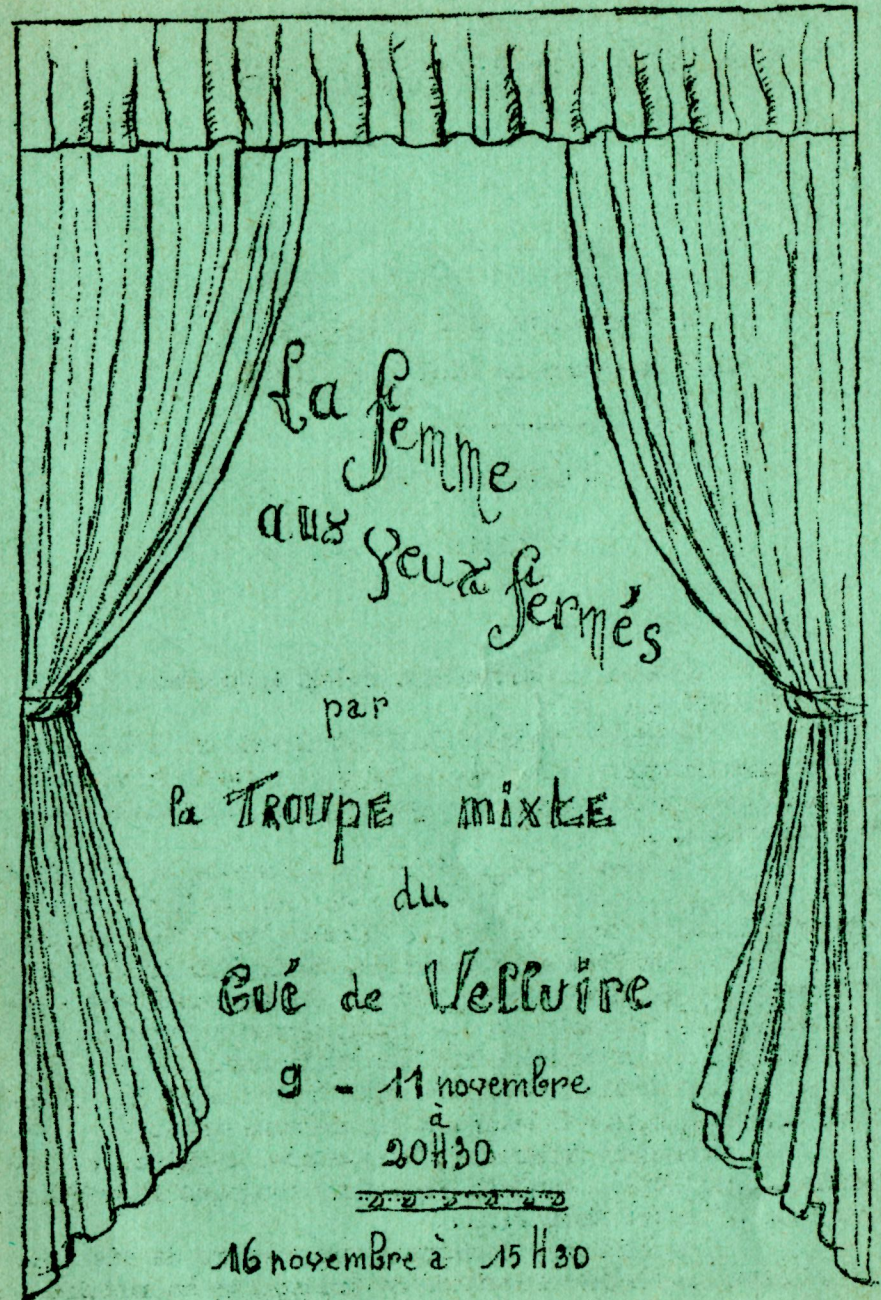 La femme
aux yeux fermés
par
la TROUPE mixte
du
Gué de Velluire
9 - 11 novembre
à
20H30
16 novembre à 15H30